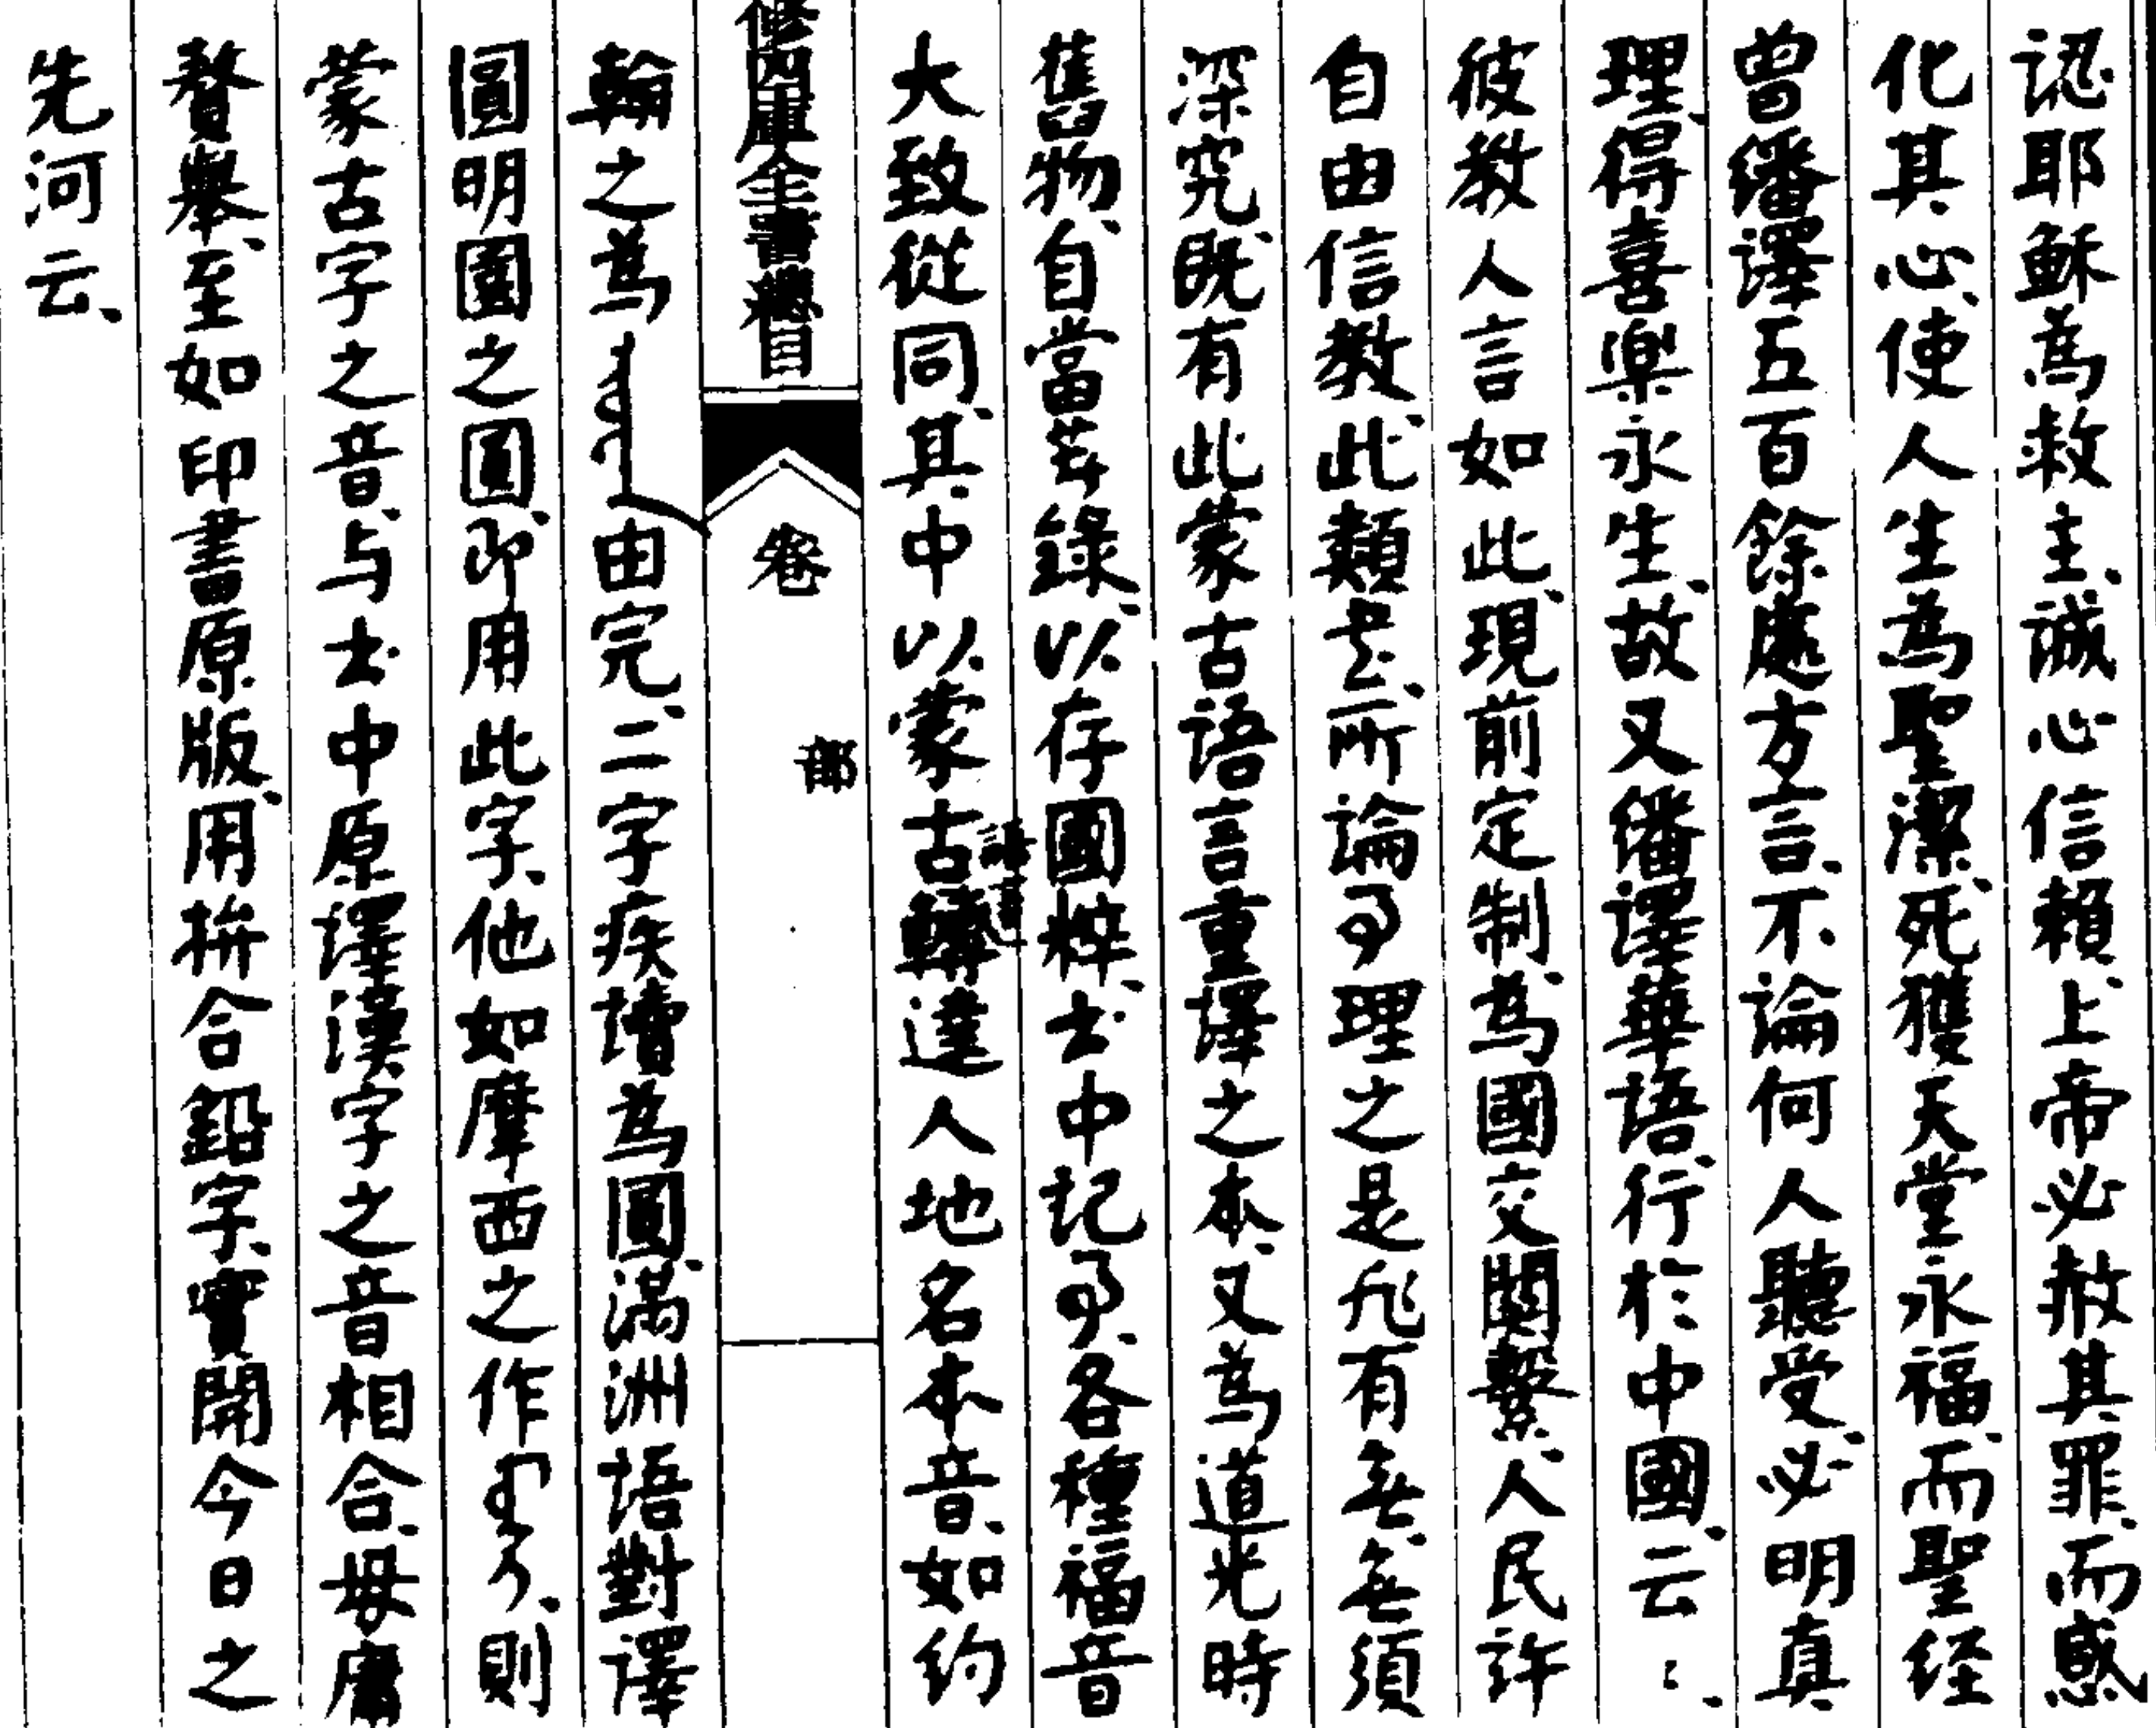 認耶穌為救主、誠心信賴上帝必赦其罪、而感
化其心、使人生為聖潔、死獲天堂永福、而聖经
曾繙譯五百餘處方言、不論何人聽受、必明真
理、得喜樂永生、故又繙譯華語、行於中國、云云、
彼教人言如此、現前定制、為國交關繫、人民許
自由信教、此類書、所論事理之是非有無、無須
深究、既有此蒙古語言重譯之本、又為道光時
舊物、自當著錄、以存國粹、書中記事、各種福音
大致從同、其中以蒙古語音譯達人地名本音、如约
修四庫全書總目 卷 部
翰之為ᠶᠣᠸᠠᠨ由完、二字疾讀為圓、滿洲語對譯
圓明園之圓、即用此字、他如摩西之作ᠮᠣᠰᠢ、則
蒙古字之音、与书中原譯漢字之音相合、毋庸
贅舉、至如印書原版、用拚合鉛字、實開今日之
先河云、